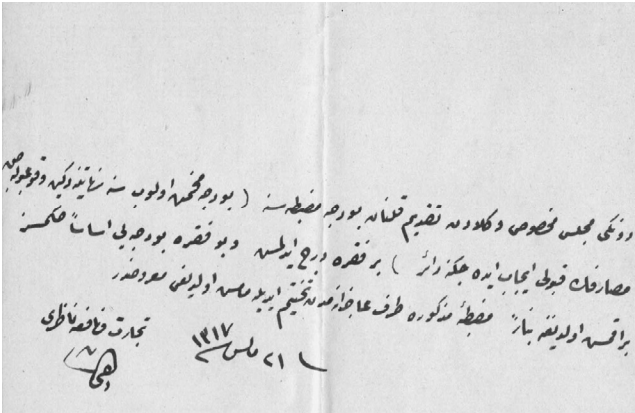 دونكى مجلس مخصوص وكلادن تقديم قلنان بودجه مضبطه سنه ( بودجه مخمن اولوب سنه نهايتنه دكين وقوعبوله جق
مصارفك قبولى ايجاب ايده جكنه دائر ) بر فقره درج ايدلمش وبو فقره بودجه يى اساساً حكمسز
براقمش اولديغنه بناءً مضبطۀ مذكوره طرف عاجزانه مدن تختيم ايديله مامش اولديغى معروضدر
٢١ مارس ٣١٧
تجارت ونافعه ناظرى
ذهنى